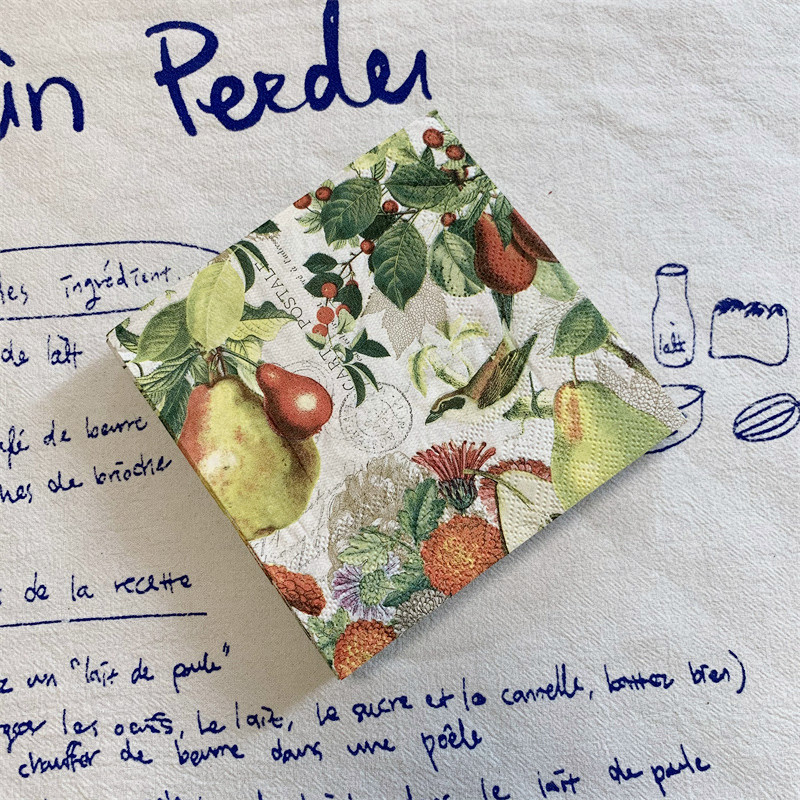 ain Perdu
des ingrédient.
de lait
café de beurre
ches de brioche
lait
CARTE POSTALE
s de la recette
z un "lait de poule"
les oeufs, le lait, le sucre et la cannelle, battez bien)
chauffer de beurre dans une poêle
le lait de poule